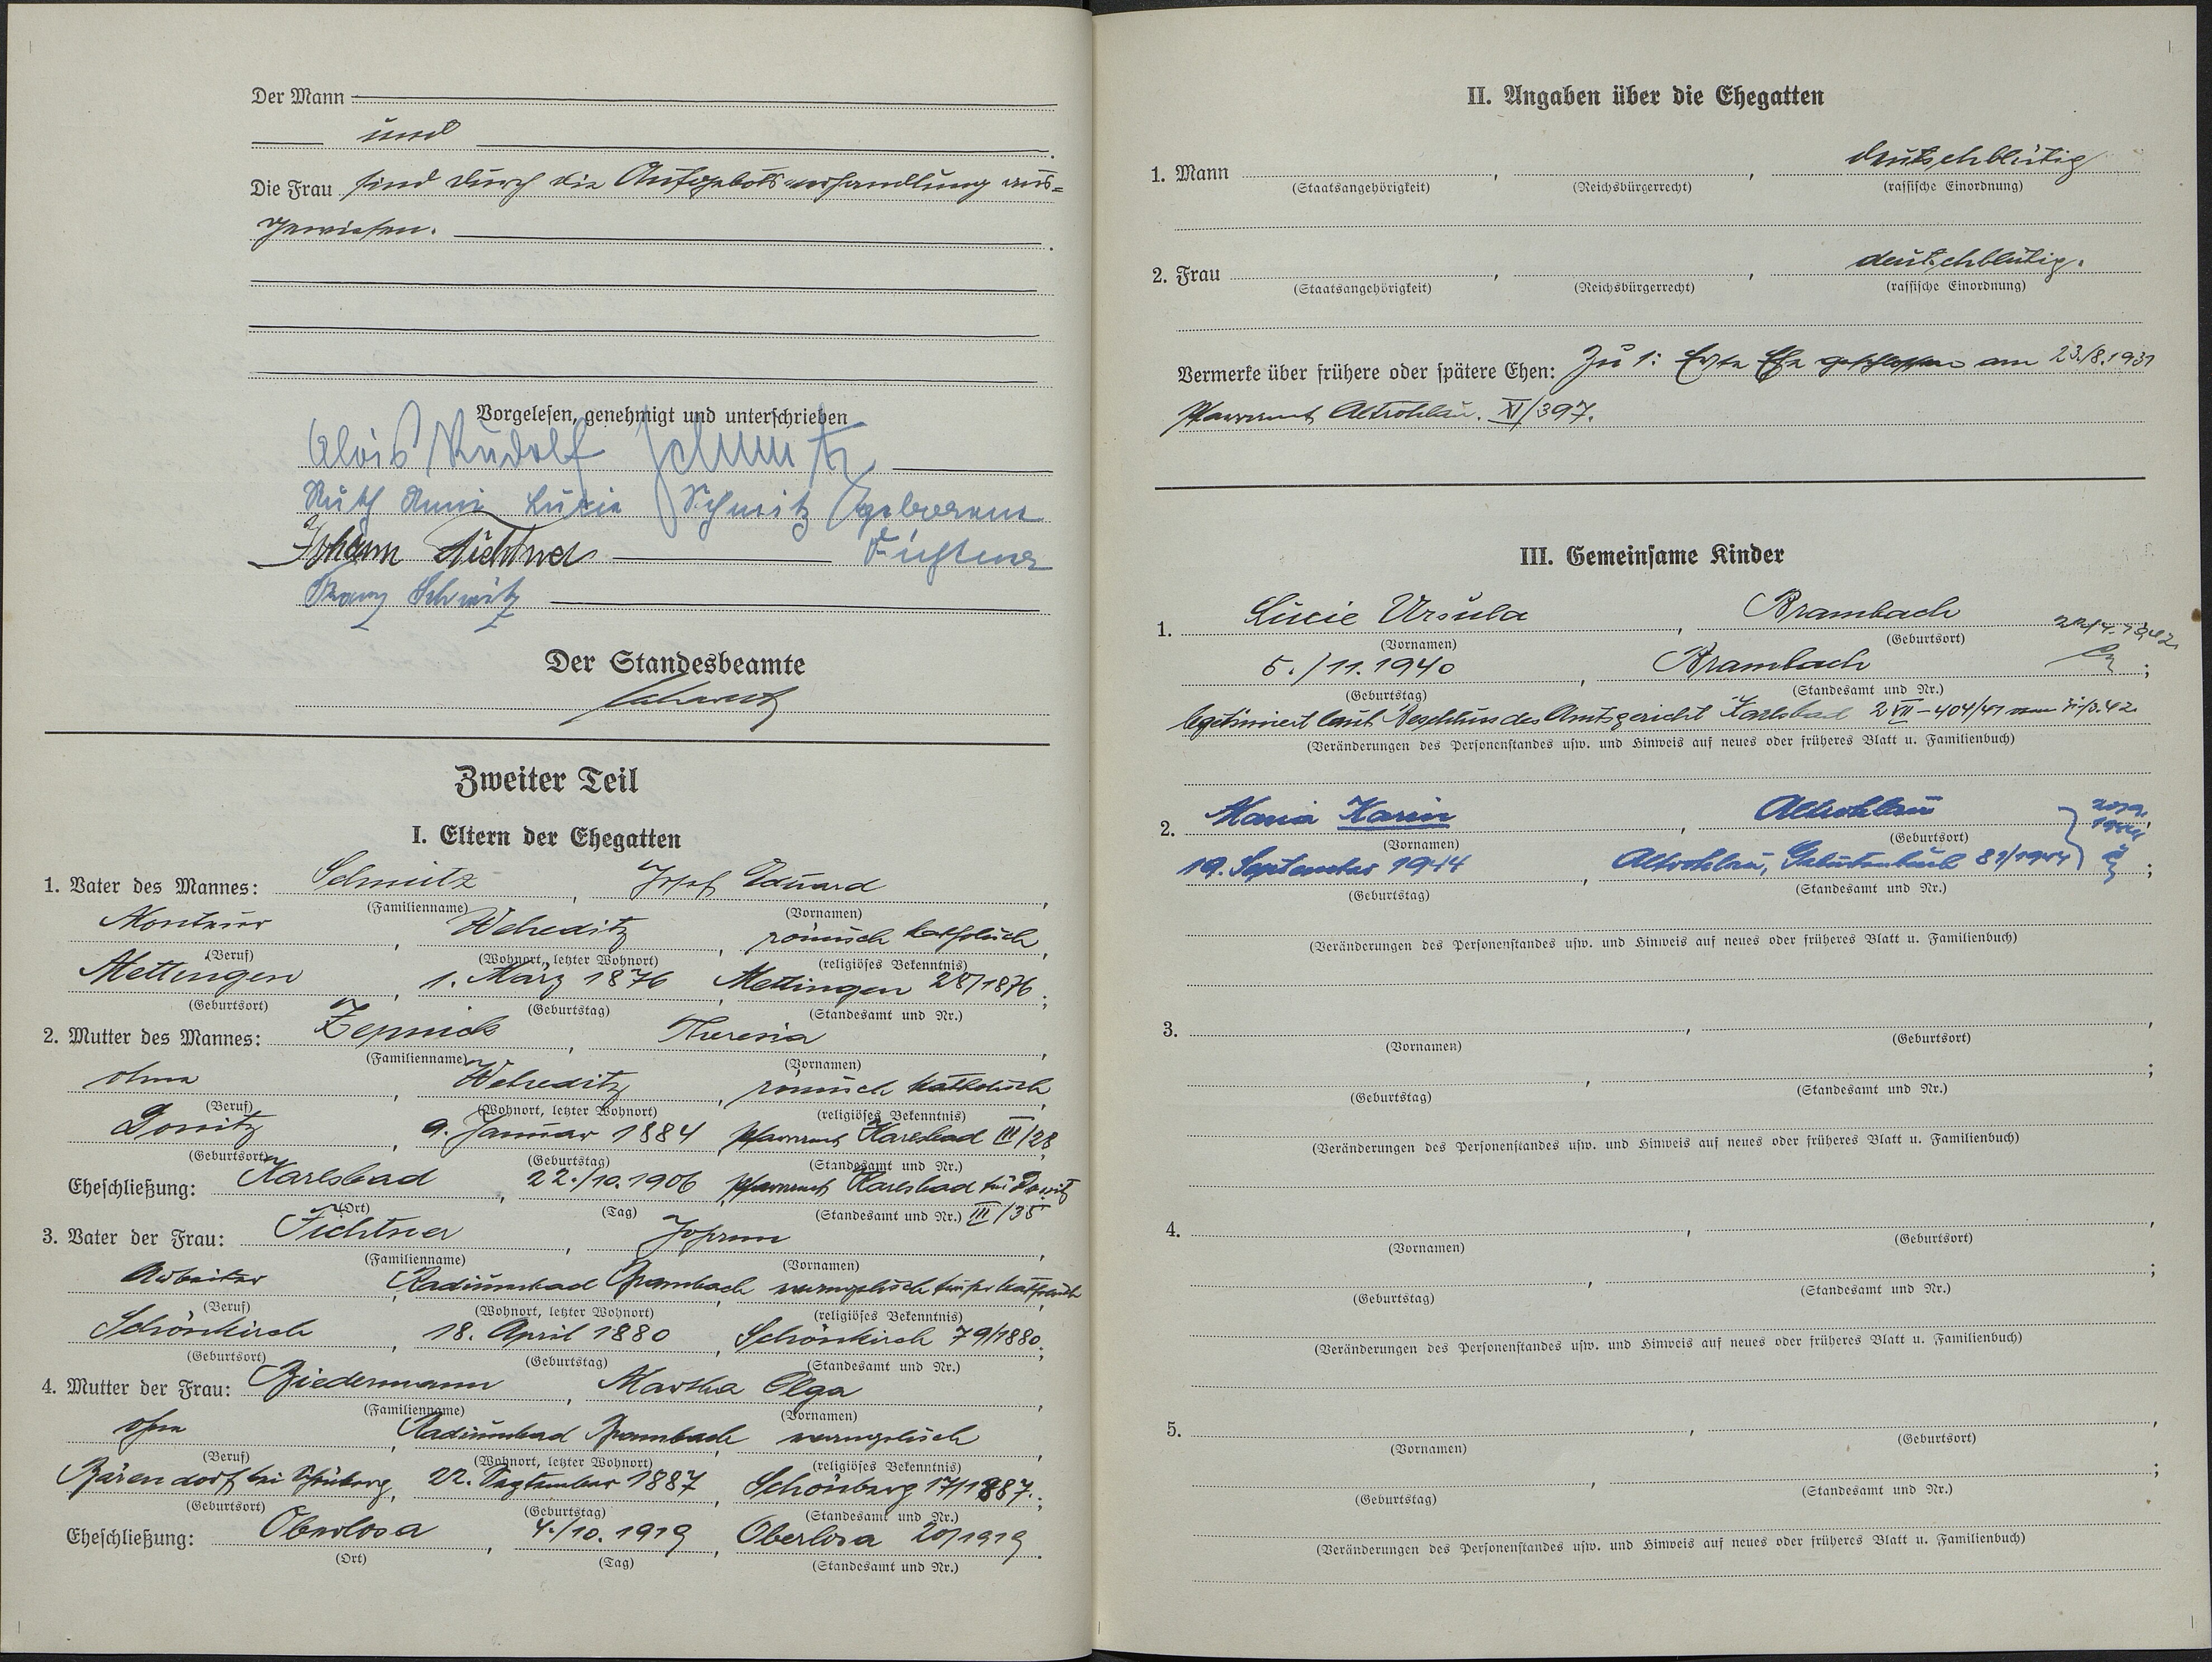 Der Mann
und
Die Frau sind durch die Aufgebotsverhandlung aus=
gewiesen.
Vorgelesen, genehmigt und unterschrieben
Alois Rudolf Schmitz
Ruth Anni Luzie Schmitz geborene
Johann Fichtner Fichtner
Franz Schmitz
Der Standesbeamte
Zweiter Teil
I. Eltern der Ehegatten
1. Vater des Mannes: Schmitz, Josef Eduard,
(Familienname) (Vornamen)
Monteur, Weheditz, römisch katholisch,
(Beruf) (Wohnort, letzter Wohnort) (religiöses Bekenntnis)
Mettingen, 1. März 1876, Mettingen 28/1876;
(Geburtsort) (Geburtstag) (Standesamt und Nr.)
2. Mutter des Mannes: Zepnick, Theresia,
(Familienname) (Vornamen)
ohne, Weheditz, römisch katholisch,
(Beruf) (Wohnort, letzter Wohnort) (religiöses Bekenntnis)
Donitz, 9. Januar 1884, Pfarramt Karlsbad III/28,
(Geburtsort) (Geburtstag) (Standesamt und Nr.)
Eheschließung: Karlsbad, 22./10. 1906, Pfarramt Karlsbad für Donitz
(Ort) (Tag) (Standesamt und Nr.) III/35
3. Vater der Frau: Fichtner, Johann,
(Familienname) (Vornamen)
Arbeiter, Radiumbad Brambach, evangelisch früher katholisch,
(Beruf) (Wohnort, letzter Wohnort) (religiöses Bekenntnis)
Schönkirch, 18. April 1880, Schönkirch 79/1880;
(Geburtsort) (Geburtstag) (Standesamt und Nr.)
4. Mutter der Frau: Biedermann, Martha Olga,
(Familienname) (Vornamen)
ohne, Radiumbad Brambach, evangelisch,
(Beruf) (Wohnort, letzter Wohnort) (religiöses Bekenntnis)
Bärendorf bei Schönberg, 22. September 1887, Schönberg 17/1887.;
(Geburtsort) (Geburtstag) (Standesamt und Nr.)
Eheschließung: Oberlosa, 4./10. 1919, Oberlosa 20/1919.
(Ort) (Tag) (Standesamt und Nr.)
II. Angaben über die Ehegatten
1. Mann, , deutschblütig
(Staatsangehörigkeit) (Reichsbürgerrecht) (rassische Einordnung)
2. Frau, , deutschblütig.
(Staatsangehörigkeit) (Reichsbürgerrecht) (rassische Einordnung)
Vermerke über frühere oder spätere Ehen: Zu 1: Erste Ehe geschlossen am 23./8.1931
Pfarramt Altrohlau. XI/397.
III. Gemeinsame Kinder
1. Lucie Ursula, Brambach
(Vornamen) (Geburtsort)
5./11.1940, Brambach;
(Geburtstag) (Standesamt und Nr.)
legitimiert laut Beschluss des Amtsgericht Karlsbad 2 VII-404/41 vom
(Veränderungen des Personenstandes usw. und Hinweis auf neues oder früheres Blatt u. Familienbuch)
2. Maria Karin, Altrohlau,
(Vornamen) (Geburtsort)
19. September 1944, Altrohlau, Geburtenbuch 81/1944;
(Geburtstag) (Standesamt und Nr.)
(Veränderungen des Personenstandes usw. und Hinweis auf neues oder früheres Blatt u. Familienbuch)
3. , ,
(Vornamen) (Geburtsort)
, ;
(Geburtstag) (Standesamt und Nr.)
(Veränderungen des Personenstandes usw. und Hinweis auf neues oder früheres Blatt u. Familienbuch)
4. , ,
(Vornamen) (Geburtsort)
, ;
(Geburtstag) (Standesamt und Nr.)
(Veränderungen des Personenstandes usw. und Hinweis auf neues oder früheres Blatt u. Familienbuch)
5. , ,
(Vornamen) (Geburtsort)
, ;
(Geburtstag) (Standesamt und Nr.)
(Veränderungen des Personenstandes usw. und Hinweis auf neues oder früheres Blatt u. Familienbuch)